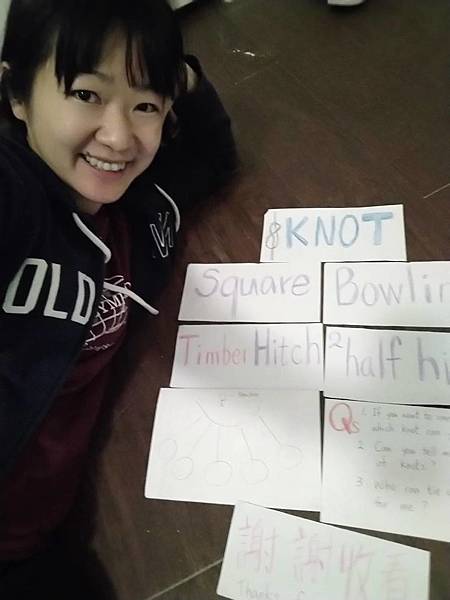 OLD
8 KNOT
Square
Bowlin
Timber Hitch
2 half hi
Qs 1. If you want to
which knot can
2. Can you tell m
of knots?
3. Who can tie
for me?
謝謝收看
Thanks